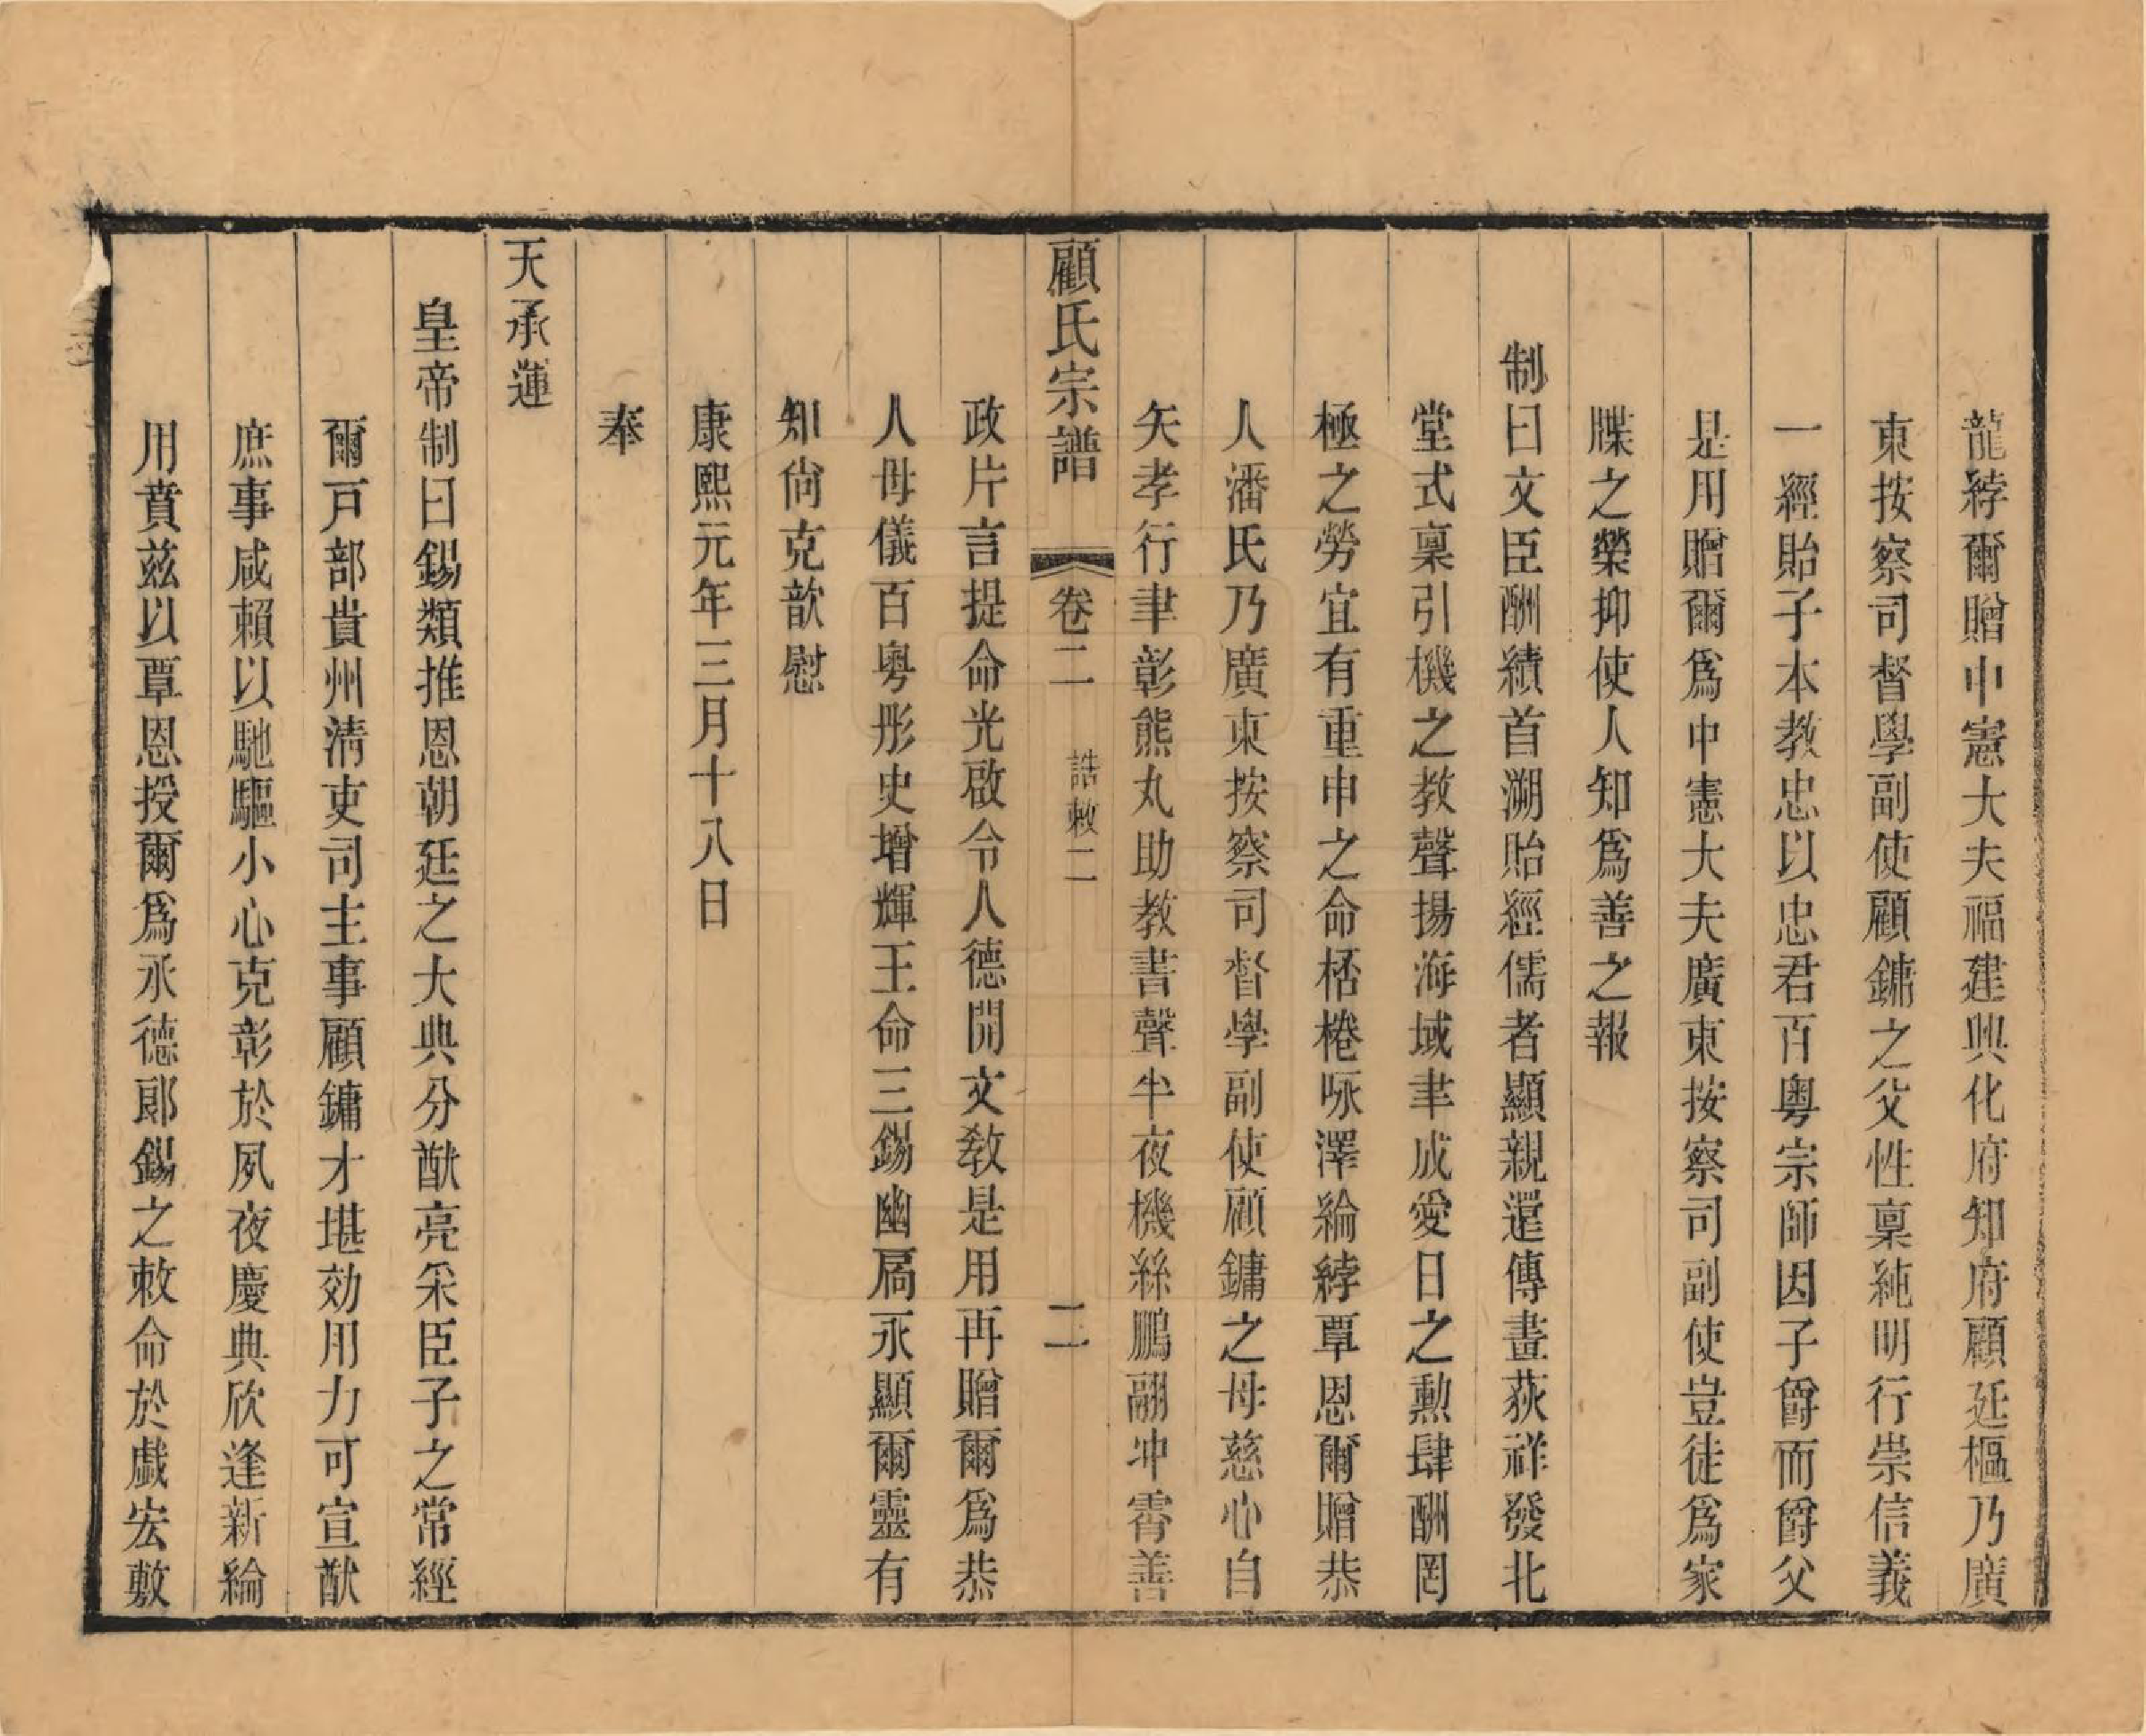 龍綍爾贈中憲大夫福建興化府知府顧延樞乃廣
東按察司督學副使顧鏞之父性稟純明行崇信義
一經貽子本教忠以忠君百粵宗師因子爵而爵父
是用贈爾爲中憲大夫廣東按察司副使豈徒爲家
牒之榮抑使人知爲善之報
制曰文臣酬績首溯貽經儒者顯親還傳畫荻祥發北
堂式稟引機之教聲揚海域聿成愛日之勳肆酬罔
極之勞宜有重申之命桮棬咏澤綸綍覃恩爾贈恭
人潘氏乃廣東按察司督學副使顧鏞之母慈心自
矢孝行聿彰熊丸助教書聲半夜機絲鵬翮冲霄善
顧氏宗譜 卷二 誥敕二 二
政片言提命光啟令人德閒文敎是用再贈爾爲恭
人母儀百粵彤史增輝王命三錫幽扃永顯爾靈有
知尙克歆慰
康熙元年三月十八日
奉
天承運
皇帝制曰錫類推恩朝廷之大典分猷亮采臣子之常經
爾戸部貴州淸吏司主事顧鏞才堪効用力可宣猷
庶事咸賴以馳驅小心克彰於夙夜慶典欣逢新綸
用賁兹以覃恩授爾爲承德郞錫之敕命於戲宏敷